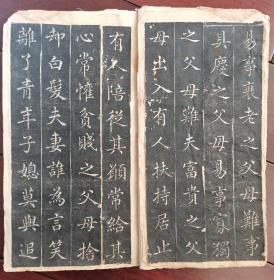 易事龔老之父母難事
具慶之父母易事寡獨
之父母難夫富貴之父
母出入有人扶持居止
有人陪從其願常給其
心常惟貧賤之父母捨
却白髮夫妻誰為言笑
離了青年子媳莫與追